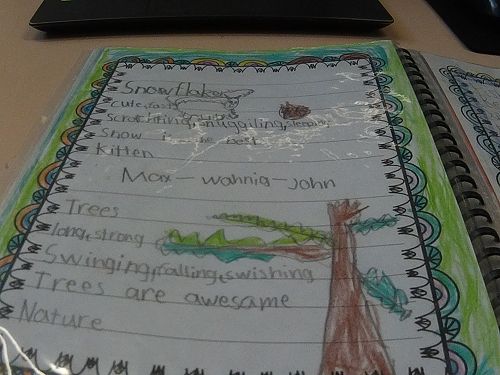 Snowflake
cute, cat
Scratching, muggiling, sleeping
Snow is the best
Kitten
Max-wahnia-John
Trees
long, strong
Swinging, falling, swishing
Trees are awesome
Nature